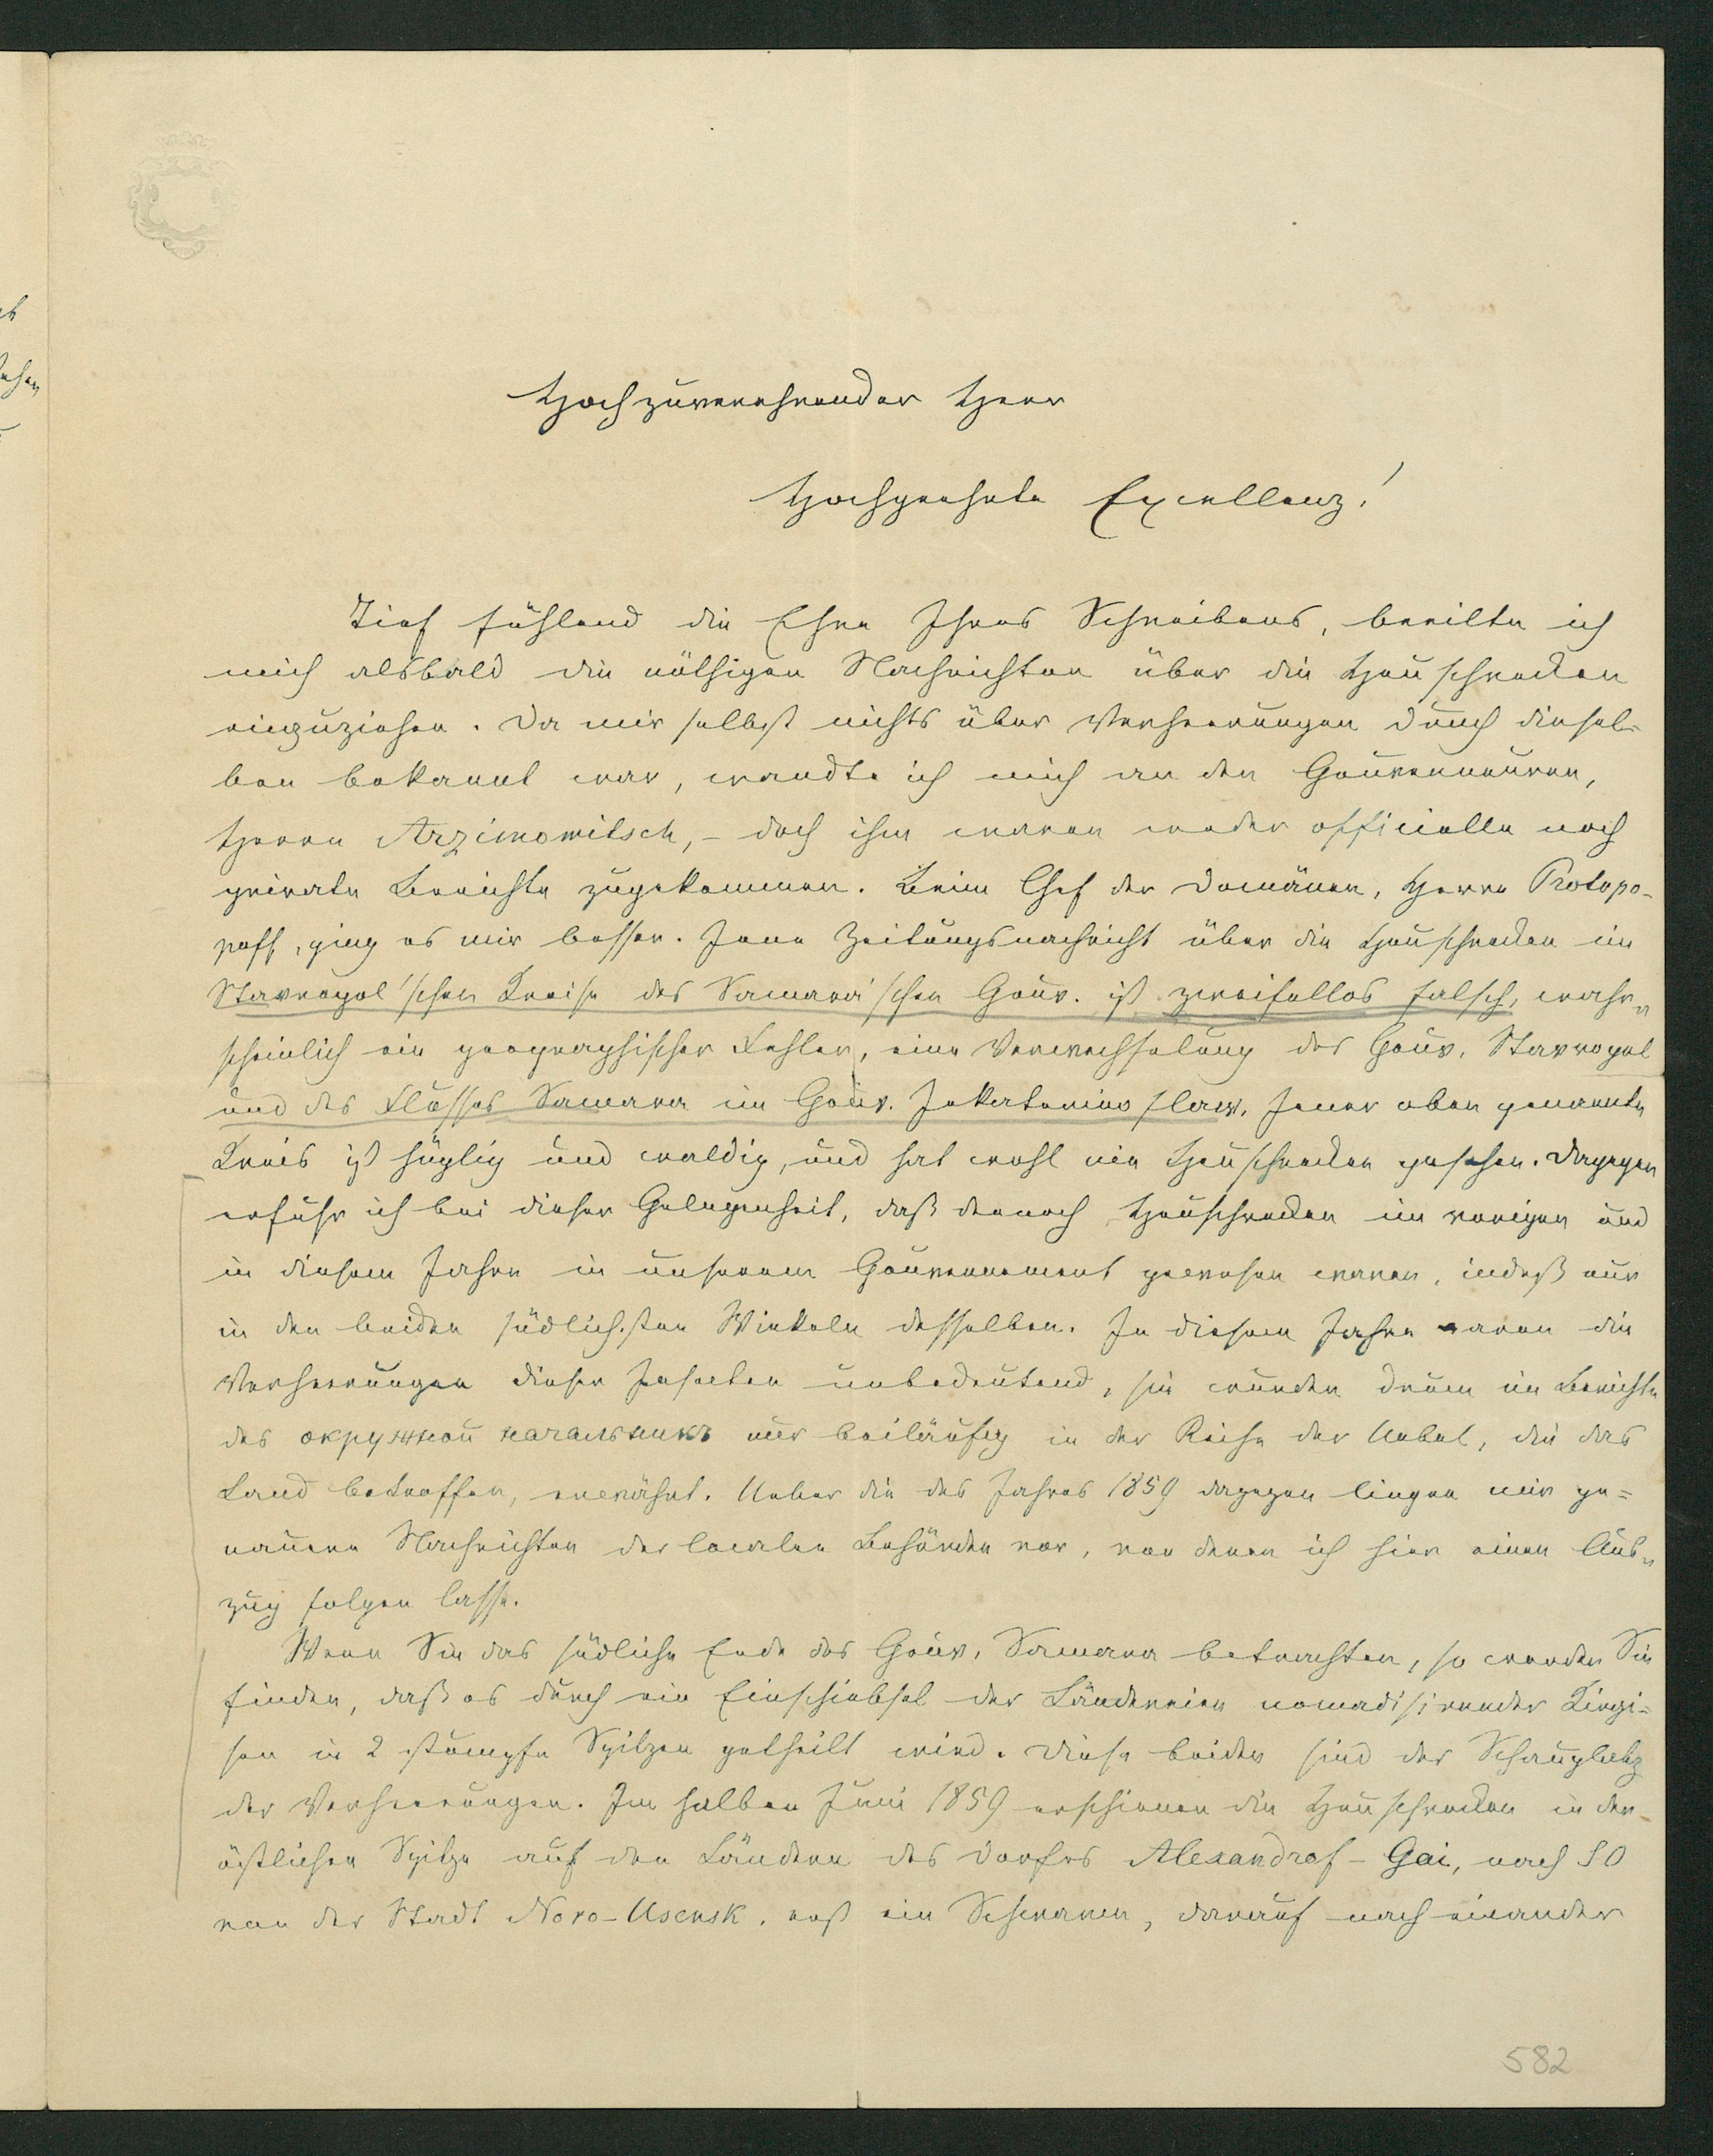 Hochzuverehrender Herr
Hochgeehrte Excellenz!
Tief fühlend die Ehre Ihres Schreibens, beeilte ich
mich alsbald die nöthigen Nachrichten über die Heuschrecken
einzuziehen. Da mir selbst nichts über Verheerungen durch diesel-
ben bekannt war, wandte ich mich an den Gouverneuren,
Herrn Arzimowitsch, – doch ihm waren weder officielle noch
private Berichte zugekommen. Beim Chef der Domänen, Herrn Protopo-
poff, ging es mir besser. Jene Zeitungsnachricht über die Heuschrecken im
Stavropol'schen Kreise des Samara'schen Gouv. ist zweifellos falsch, wahr-
scheinlich ein geographischer Fehler, eine Verwechselung des Gouv. Stavropol
und des Flusses Samara im Gouv. Jekaterinoslaw. Jener oben genannte
Kreis ist hüglig und waldig, und hat wohl nie Heuschrecken gesehen. Dagegen
erfuhr ich bei dieser Gelegenheit, daß dennoch Heuschrecken im vorigen und
in diesem Jahre in unserem Gouvernement gewesen waren, indeß nur
in den beiden südlichsten Winkeln desselben. In diesem Jahre waren die
Verheerungen dieser Insecten unbedeutend, sie wurden drum im Berichte
des окружной начальникъ nur beiläufig in der Reihe der Uebel, die das
Land betroffen, erwähnt. Ueber die des Jahres 1859 dagegen liegen mir ge=
nauere Nachrichten der localen Behörden vor, von denen ich hier einen Aus-
zug folgen lasse.
Wenn Sie das südliche Ende des Gouv. Samara betrachten, so werden Sie
finden, daß es durch ein Einschiebsel der Ländereien nomadisirender Kirgi=
sen in 2 stumpfe Spitzen getheilt wird. Diese beiden sind der Schauplatz
der Verheerungen. Im halben Juni 1859 erschienen die Heuschrecken in der
östlichen Spitze auf den Ländern des Dorfes Alexandrof-Gai, nach SO
von der Stadt Novo-Usensk. erst ein Schwarm, darauf nach einander
582